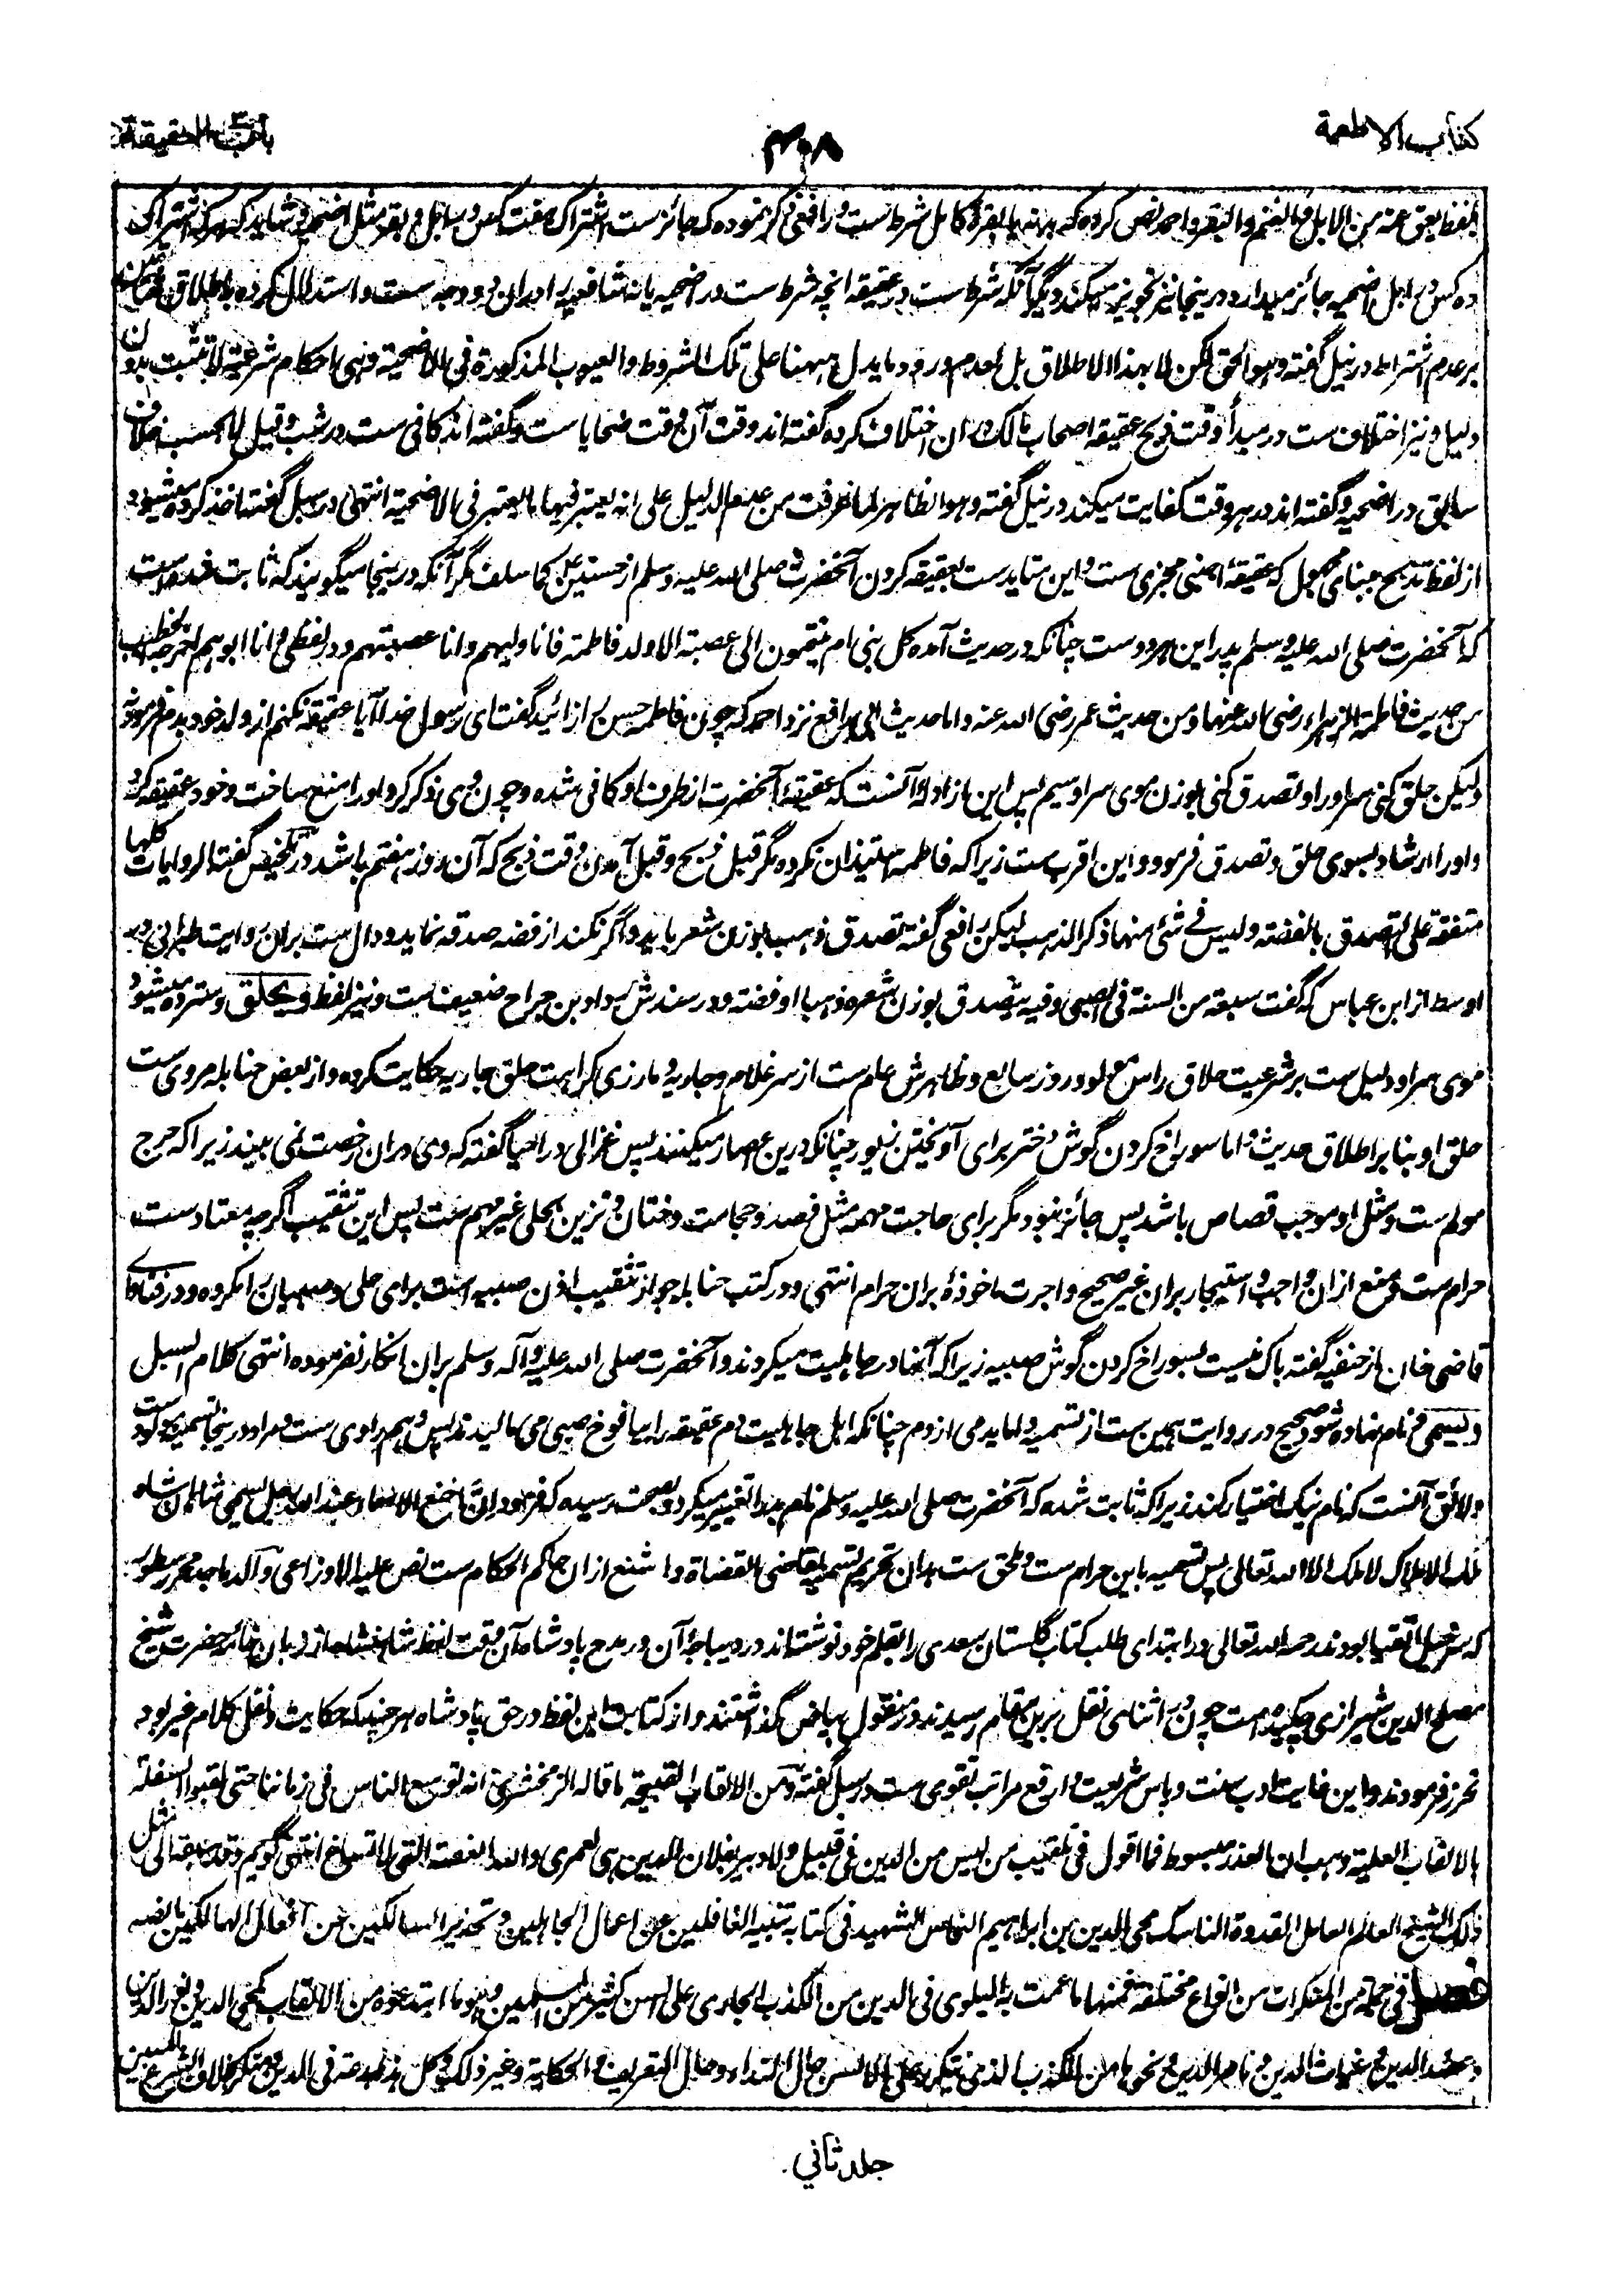 كتاب الاطعمة
باب العقيقة
بلفظ يعق عنه من الابل والغنم والبقر و احمد نص كرده كه بدنه يا بقرهٔ كامل شرط ست و رافعى ذكر نموده كه جائز ست اشتراك هفت كس در ابل و بقر مثل اضحيه و شايد كه هركه اشتراك
ده كس در ابل اضحيه جائز ميدارد درينجا نيز تجويز ميكند ديگر آنكه شرط ست در عقيقه انچه شرط ست در اضحيه يا نه شافعيه را دران دو وجه ست و استدلال كرده باطلاق شاتين
بر عدم اشتراط در نيل گفته و هو الحق لكن لا بهذا الاطلاق بل لعدم ورود ما يدل ههنا على تلك الشروط والعيوب المذكورة فى الاضحية و هى احكام شرعية لا تثبت بدون
دليل و نيز اختلاف ست در مبدأ وقت ذبح عقيقه اصحاب مالك دران اختلاف كرده گفته اند وقت آن وقت ضحايا ست و گفته اند كافى ست در شب و قيل لا بحسب خلاف
سابق در اضحيه و گفته اند در هر وقت كفايت ميكند در نيل گفته و هو الظاهر لما عرفت من عدم الدليل على انه يعتبر فيها ما يعتبر فى الاضحية انتهى در سبل گفته اخذ كرده ميشود
از لفظ تذبح مبناى مجهول كه عقيقهٔ اجنبى مجزى ست و اين متايد ست بعقيقه كردن آنحضرت صلى الله عليه و سلم از حسنين على ما سلف مگر آنكه درينجا ميگويند كه ثابت شده است
كه آنحضرت صلى الله عليه و سلم پدر اين هر دو ست چنانكه در حديث آمده كل بنى ام ينتمون الى عصبة الا ولد فاطمة فانا وليهم و انا عصبتهم و در لفظى و انا ابوهم اخرجه الخطيب
من حديث فاطمة الزهراء رضى الله عنها و من حديث عمر رضى الله عنه و اما حديث ابى رافع نزد احمد كه چون فاطمه حسن را زائيد گفت اى رسول خدا آيا عقيقه نكنم از ولد خود بدم فرمود نه
وليكن حلق كنى سر او را و تصدق كنى بوزن موى سر او سيم پس اين از ادلهٔ آنست كه عقيقهٔ آنحضرت از طرف او كافى شده و چون وى ذكر كرد او را منع ساخت و خود عقيقه كرد
و او را ارشاد بسوى حلق و تصدق فرمود و اين اقرب ست زيرا كه فاطمه استيذان نكرده مگر قبل ذبح و قبل آمدن وقت ذبح كه آن روز هفتم باشد در تلخيص گفته الروايات كلها
متفقة على التصدق بالفضة وليس فى شئ منها ذكر الذهب ليكن رافعى گفته تصدق ذهب بوزن شعر بايد و اگر نكند از فضه صدقه نمايد و دال ست بران روايت طبرانى در
اوسط از ابن عباس كه گفت سبعة من السنة فى الصبى و فيه يتصدق بوزن شعره ذهبا او فضة و در سندش رواد بن جراح ضعيف ست و نيز لفظ و يحلق و سترده ميشود
موى سر او دليل ست بر شرعيت حلاق راس مولود روز سابع و ظاهرش عام ست از سر غلام و جاريه و مازرى كراهت حلق جاريه حكايت كرده و از بعض حنابله مروى ست
حلق او بنا بر اطلاق حديث و اما سوراخ كردن گوش دختر براى آويختن زيور چنانكه درين اعصار ميكنند پس غزالى در احيا گفته كه وى دران رخصت نمى بيند زيرا كه جرح
مولم ست و مثل او موجب قصاص باشد پس جائز نبود مگر براى حاجت مهمه مثل فصد و حجامت و ختان و تزين بحلى غير مهم ست پس اين تثقيب اگرچه معتاد ست
حرام ست و منع ازان واجب و استيجار بران غير صحيح و اجرت ماخوذهٔ بران حرام انتهى و در كتب حنابله جواز تثقيب اذن صبيه است براى حلى و صبيان را مكروه و در فتاواى
قاضى خان از حنفيه گفته باك نيست بسوراخ كردن گوش صبيه زيرا كه آنها در جاهليت ميكردند و آنحضرت صلى الله عليه و آله و سلم بران انكار نفرموده انتهى كلام السبل
و يسمى و نام نهاده شود صحيح در روايت همين ست از تسميه و اما يدمى از دم چنانكه اهل جاهليت دم عقيقه را بيافوخ صبى مى ماليدند پس وهم راوى ست و مراد درينجا تسميهٔ مولود ست
و لائق آنست كه نام نيك اختيار كند زيرا كه ثابت شده كه آنحضرت صلى الله عليه و سلم نام بد را تغيير ميكرد و بصحت رسيده كه فرمود ان اخنع الاسماء عند الله رجل يسمى شاهان شاه
ملك الاملاك لا ملك الا الله تعالى پس تسميه باين حرام ست و ملحق ست بدان تحريم تسميه بقاضى القضاة و اشنع ازان حاكم الحكام ست نص عليه الاوزاعى و والد ماجد محرر سطور
كه سرخيل اتقيا بودند رحمه الله تعالى در ابتداى طلب كتاب گلستان سعدى را بقلم خود نوشته اند در ديباجهٔ آن در مدح پادشاه آن وقت لفظ شاهنشاه از زبان خامهٔ حضرت شيخ
مصلح الدين شيرازى چكيده است چون در اثناى نقل برين مقام رسيدند در منقول بياض گذاشتند و از كتابت اين لفظ در حق پادشاه هر چند كه حكايت و نقل كلام غير بود
تحرز فرمودند و اين غايت ادب سنت و پاس شريعت و ارفع مراتب تقوى ست در سبل گفته و من الالقاب القبيحة ما قاله الزمخشرى انه توسع الناس فى زماننا حتى لقبوا السفلة
بالالقاب العلية و هب ان العذر مبسوط فما اقول فى تلقيب من ليس من الدين فى قبيل ولا دبير بفلان الدين هى لعمرى والله الغصة التى لا تساغ انتهى گويم و قد سبقه الى مثل
ذلك الشيخ العالم العامل القدوة الناسك محى الدين بن ابراهيم النحاس الشهيد فى كتابه تنبيه الغافلين عن اعمال الجاهلين و تحذير السالكين من افعال الهالكين ما نصه
فصل فى جملة من المنكرات من انواع مختلفة فمنها ما عمت به البلوى فى الدين من الكذب الجارى على السن كثير من المسلمين و هو ما ابتدعوه من الالقاب كمحى الدين و نور الدين
و عضد الدين و غياث الدين و ناصر الدين و نحوها من الكذب الذى يتكرر على الالسن حال النداء و حال التعريف و الحكاية و غير ذلك و كل هذا بدعة فى الدين و منكر خلاف الشرع المبين
جلد ثاني